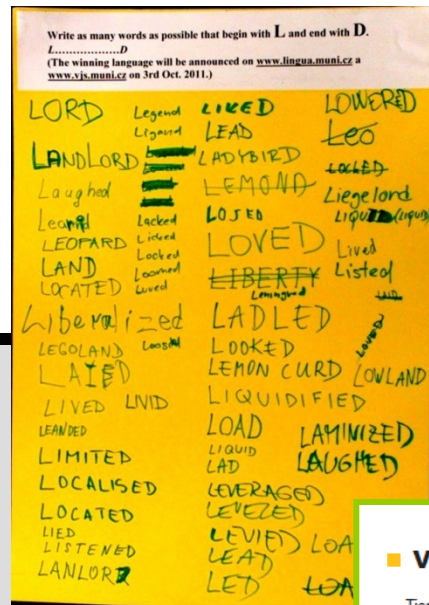 Write as many words as possible that begin with L and end with D.
L..................D
(The winning language will be announced on www.lingua.muni.cz a
www.vjs.muni.cz on 3rd Oct. 2011.)
LORD
LANDLORD
Laughed
LEOPARD
LAND
LOCATED
Liberalized
LEGOLAND
LIVED LIVID
LEANDED
LIMITED
LOCALISED
LOCATED
LIED
LISTENED
LANLORD
Legend
Ligand
Lacked
Licked
Locked
Loomed
Lured
LIKED
LEAD
LADYBIRD
LEMOND
LOSED
LOVED
LIBERTY
Leningrad
LADLED
LOOKED
LEMON CURD
LIQUIDIFIED
LOAD
LIQUID
LAD
LEVERAGED
LEVELED
LEVIED
LEAD
LED
LOWERED
LEO
LOCKED
Liegelord
Lived
Listed
LAID
LOVED
LOWLAND
LAMINIZED
LAUGHED
LOA
LOA
V